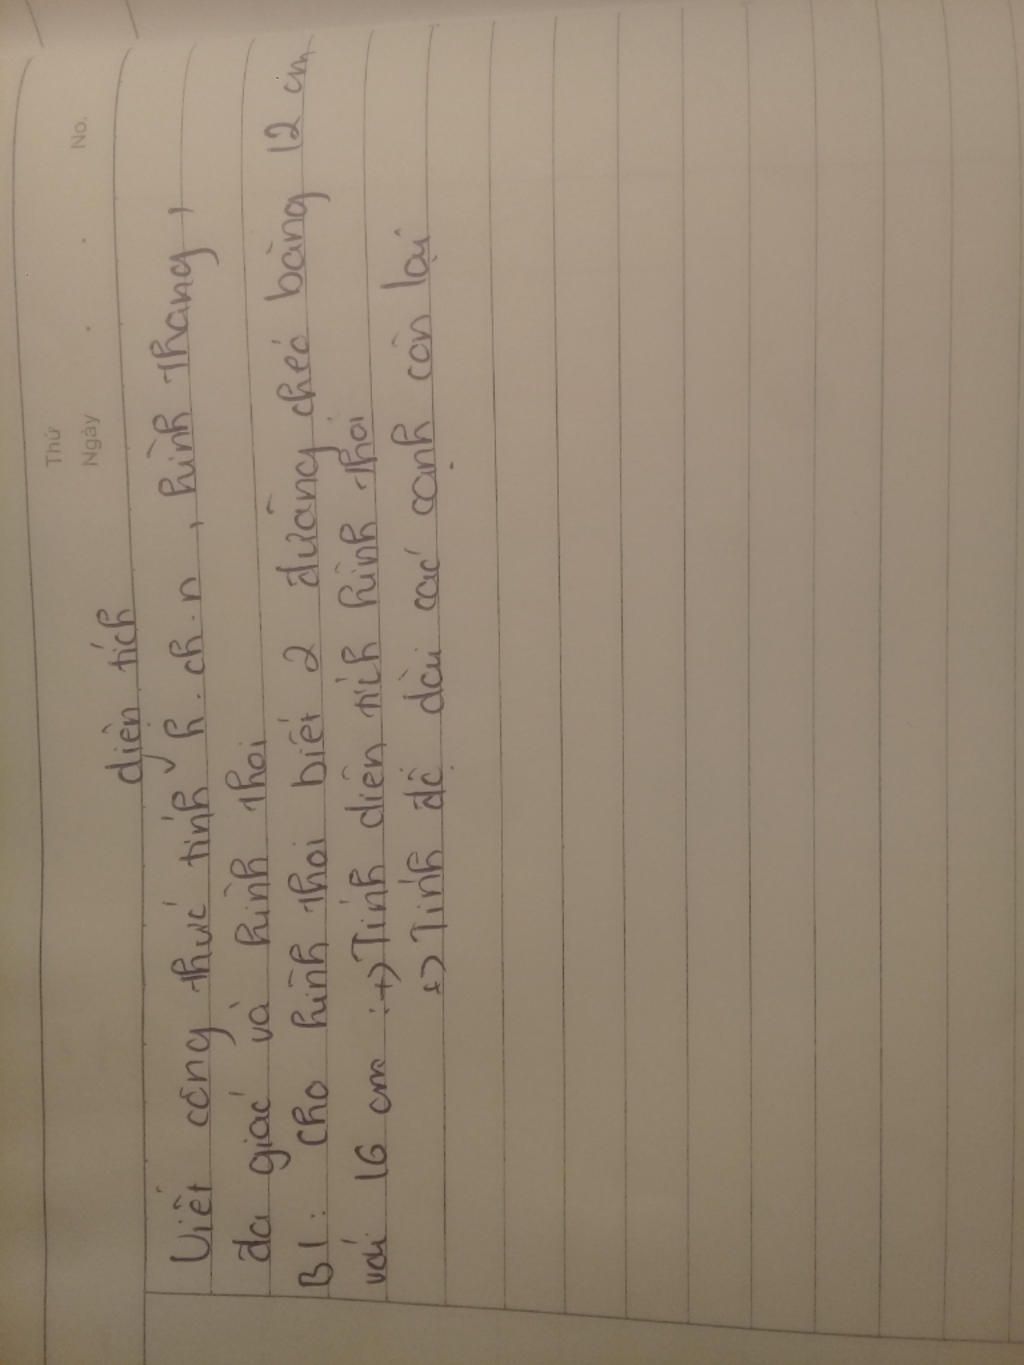 Thứ
Ngày
No.
diện tích
Viết công thức tính h.ch.n, hình thang,
đa giác và hình thoi
B1: Cho hình thoi biết 2 đường chéo bằng 12 cm
với 16 cm :+) Tính diện tích hình thoi
+) Tính độ dài các cạnh còn lại